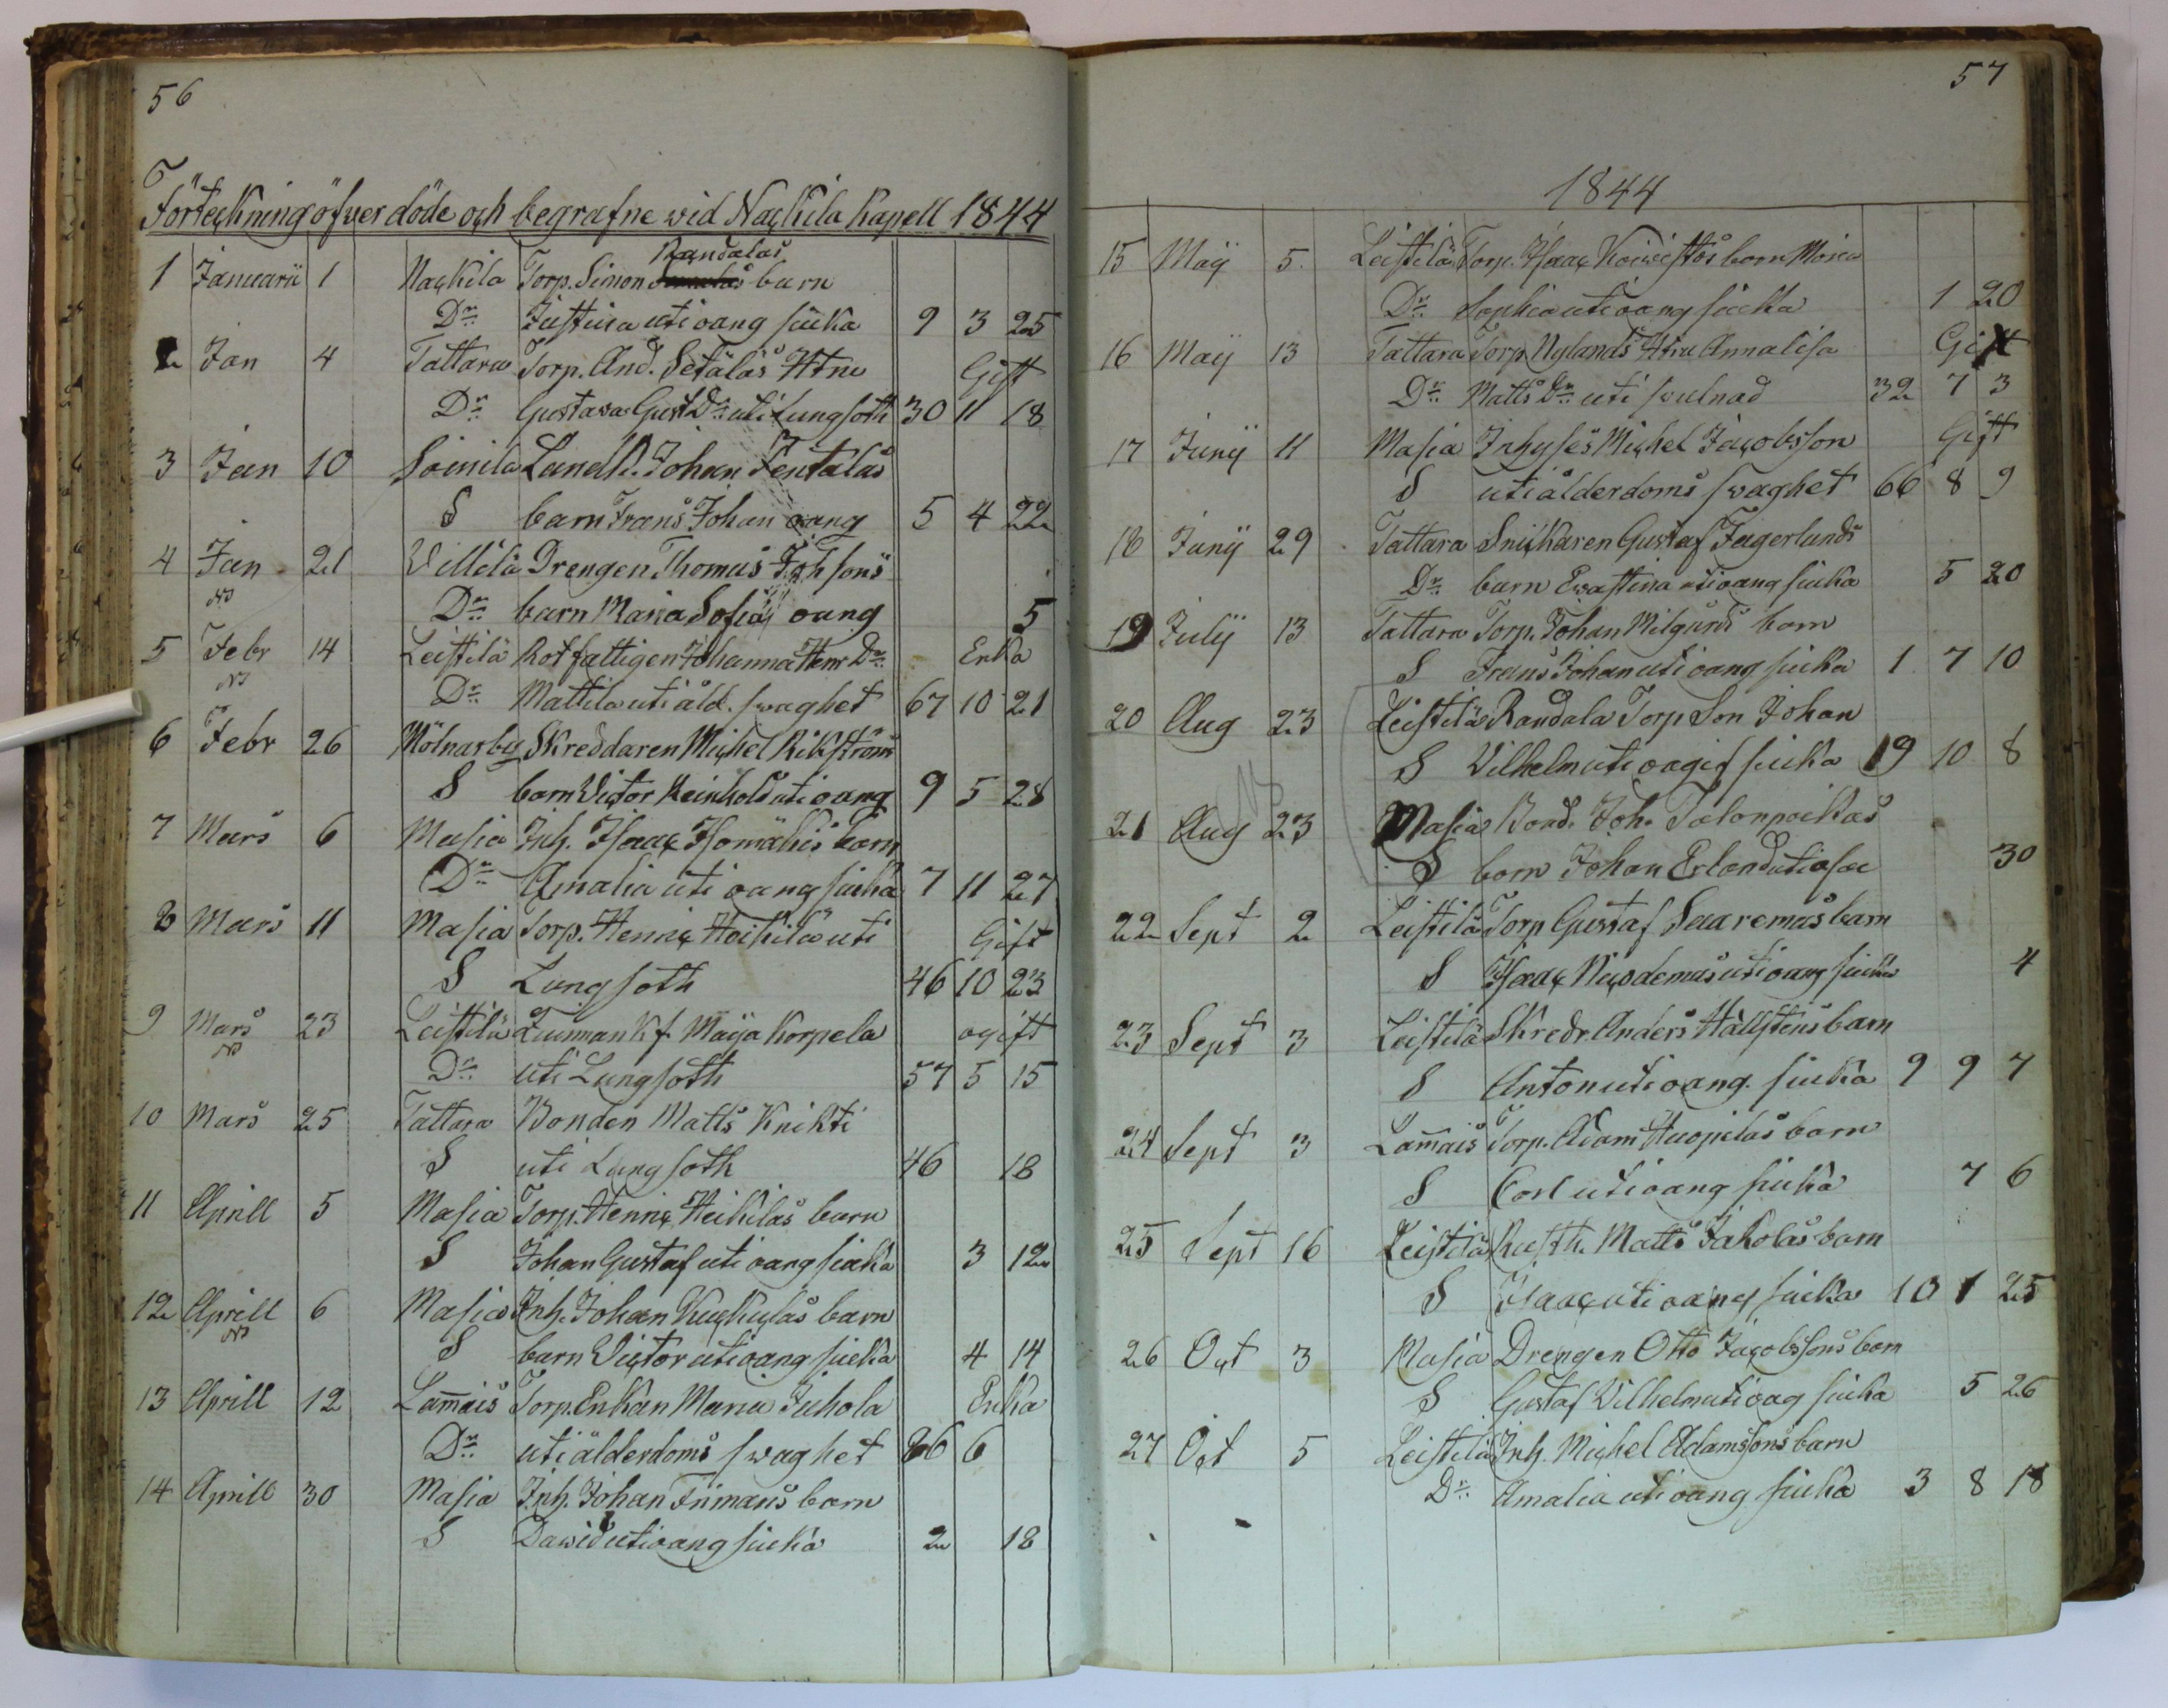 56
Förteckning öfver döde och begrafne vid Nackila Kapell 1844
Randalas
1 Januarii 1 Nackila Torp. Simon barn
Dr Justina uti oang siuka 9 3 25
2 Jan 4 Tattara Torp. And. Setäläs Hru Gift
Dr Gustava Gust Dr uti Lungsoth 30 11 18
3 Jan 10 Soinila Landb. Johan Tentalas
S barn Frans Johan oang 5 4 22
4 Jan 21 Villila Drengen Thomas Joh sons
Dr barn Maria Sofia oang 5
5 Febr 14 Leistilä Rotfattigen Johanna Henr Dr Enka
Dr Mattila uti åld. swaghet 67 10 21
6 Febr 26 Mölnarby Skreddaren Michel Rikströms
S barn Victor Reinhold uti oang 9 5 28
7 Mars 6 Masia Inh. Isaac Isomäkis barn
Dr Amalia uti oang siuka 7 11 27
8 Mars 11 Masia Torp. Henric Heikilä uti Gift
S Lungsoth 46 10 23
9 Mars 23 Leistilä Tunman Kf. Maija Korpela ogift
Dr uti Lungsoth 57 5 15
10 Mars 25 Tattara Bonden Matts Knihti
S uti Lungsoth 46 18
11 Aprill 5 Masia Torp. Henric Heikilas barn
S Johan Gustaf uti oang siuka 3 12
12 Aprill 6 Masia Inh. Johan Kuckulas barn
S barn Victor uti oang siuka 4 14
13 Aprill 12 Lam̄ais Torp. Enkan Maria Juhola Enka
Dr uti ålderdoms swaghet 66 6
14 Aprill 30 Masia Inh. Johan Frimans barn
S David uti oang siuka 2 18
57
1844
15 Maij 5 Leistilä Torp. Isaac Koivistos barn Maria
Dr Sophia uti oang siuka 1 20
16 Maij 13 Tattara Torp. Nylands Hru Annalisa Gift
Dr Matts Dr uti svulnad 32 7 3
17 Junij 11 Masia Inhyses Michel Jacobsson Gift
S uti ålderdoms swaghet 66 8 9
18 Junij 29 Tattara Snickaren Gustaf Fagerlunds
Dr barn Evastina uti oang siuka 5 20
19 Julij 13 Tattara Torp. Johan Milgurds barn
S Frans Johan uti oang siuka 1 7 10
20 Aug 23 Leistilä Randala Torp Son Johan
S Vilhelm uti oagif siuka 19 10 8
21 Aug 23 Masia Bond. Joh. Talonpoikas
S barn Johan Erland uti 30
22 Sept 2 Leistilä Torp Gustaf Saaremas barn
S Isaac Nicodemus uti oang siuka 4
23 Sept 3 Leistilä Skredr. Anders Hällstens barn
S Anton uti oang. siuka 9 9 7
24 Sept 3 Lam̄ais Torp. Adam Huopilas barn
S Carl uti oang siuka 7 6
25 Sept 16 Leistilä Rusth. Matts Jakolas barn
S Isaac uti oang siuka 10 1 25
26 Oct 3 Masia Drengen Otto Jacobssons barn
S Gustaf Vilhelm uti oag siuka 5 26
27 Oct 5 Leistilä Inh. Michel Adamssons barn
Dr Amalia uti oang siuka 3 8 18